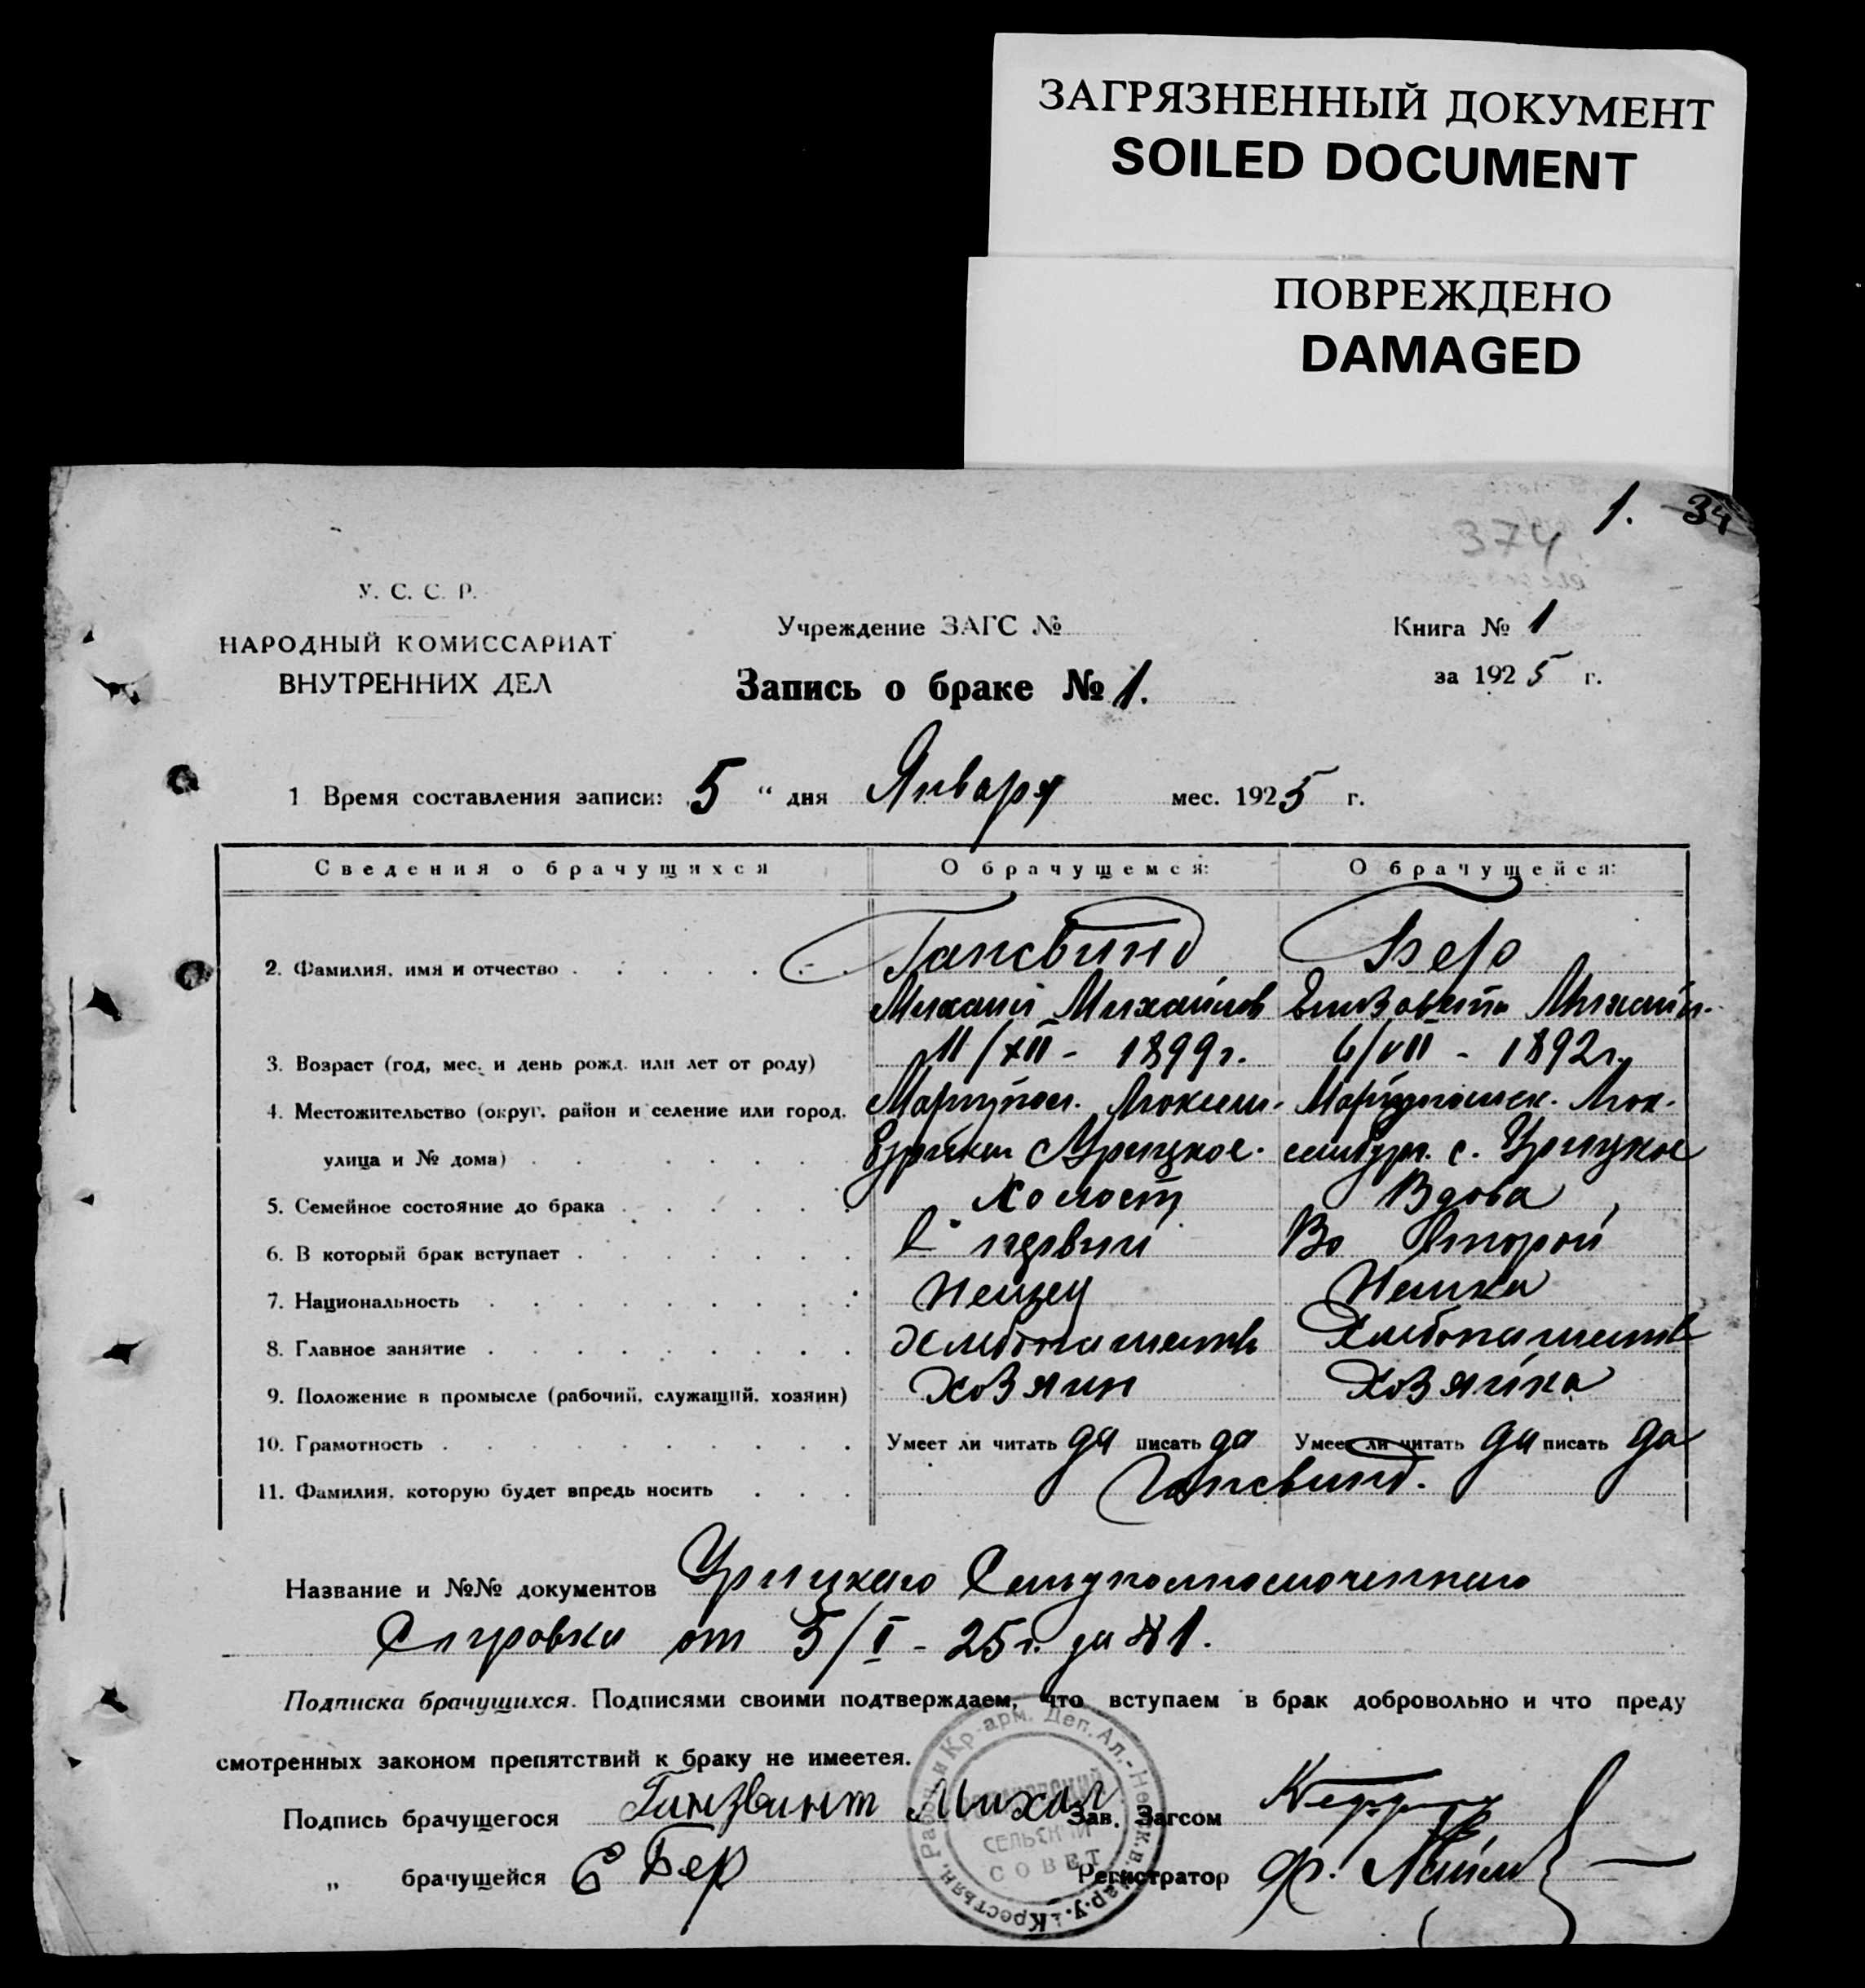 ЗАГРЯЗНЕННЫЙ ДОКУМЕНТ
SOILED DOCUMENT
ПОВРЕЖДЕНО
DAMAGED
1. 34
374
У. С. С. Р.
НАРОДНЫЙ КОМИССАРИАТ
ВНУТРЕННИХ ДЕЛ
Учреждение ЗАГС №
Запись о браке № 1.
Книга № 1
за 1925 г.
1 Время составления записи: 5 “ дня Января мес. 1925 г.
Сведения о брачущихся О брачущемся: О брачущейся:
2. Фамилия, имя и отчество Гансвинд Бер
Михаил Михайлов Елизавета Михайл.
3. Возраст (год, мес. и день рожд. или лет от роду) 11/XII - 1899 г. 6/VII - 1892 г.
4. Местожительство (округ, район и селение или город, Мариупол. Люксем- Мариупольск. Люк-
улица и № дома) с. Урицкое
5. Семейное состояние до брака Холост Вдова
6. В который брак вступает В первый Во второй
7. Национальность Немец Немка
8. Главное занятие Хлебопашеств Хлебопашеств
9. Положение в промысле (рабочий, служащий, хозяин) Хозяин Хозяйка
10. Грамотность Умеет ли читать да писать да Умеет ли читать да писать да
11. Фамилия, которую будет впредь носить Гансвинд.
Название и №№ документов Урицкаго Сельуполномоченнаго
от 5/I - 25 г. за № 1.
Подписка брачущихся. Подписями своими подтверждаем, что вступаем в брак добровольно и что преду
смотренных законом препятствий к браку не имеется.
Подпись брачущегося Ганзвинт Михал Зав. Загсом
„ брачущейся Е Бер Регистратор
СЕЛЬСКИЙ
СОВЕТ